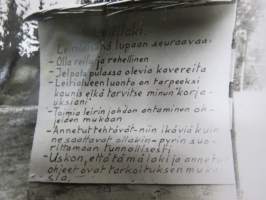 Leiriläisenä lupaan seuraavaa:
- Olla reilu ja rehellinen
- Jelpata pulassa olevia kavereita
- Leirialueen luonto on tarpeeksi
kaunis eikä tarvitse minun "korja-
uksiani"
- Toimia leirin johdon antamien oh-
jeiden mukaan
- Annetut tehtävät - niin ikäviä kuin
ne saattavat ollakin - pyrin suo-
rittamaan tunnollisesti
- Uskon, että tämä laki ja annetut
ohjeet ovat tarkoituksen mukai-
sia.